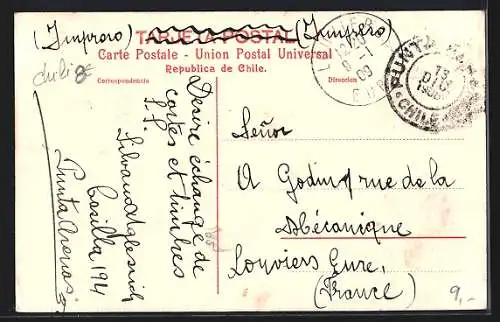 (Impreso) (Impreso)
TARJETA POSTAL
Carte Postale - Union Postal Universal
Republica de Chile.
Correspondencia Direccion
chili 8c
PUNTA
13
DIC
CHILE
Desire échange de
cartes et timbres
Casilla 194
Punta Arenas
Señor
A Godin rue de la
Mécanique
Louviers Eure.
(France)
9,-